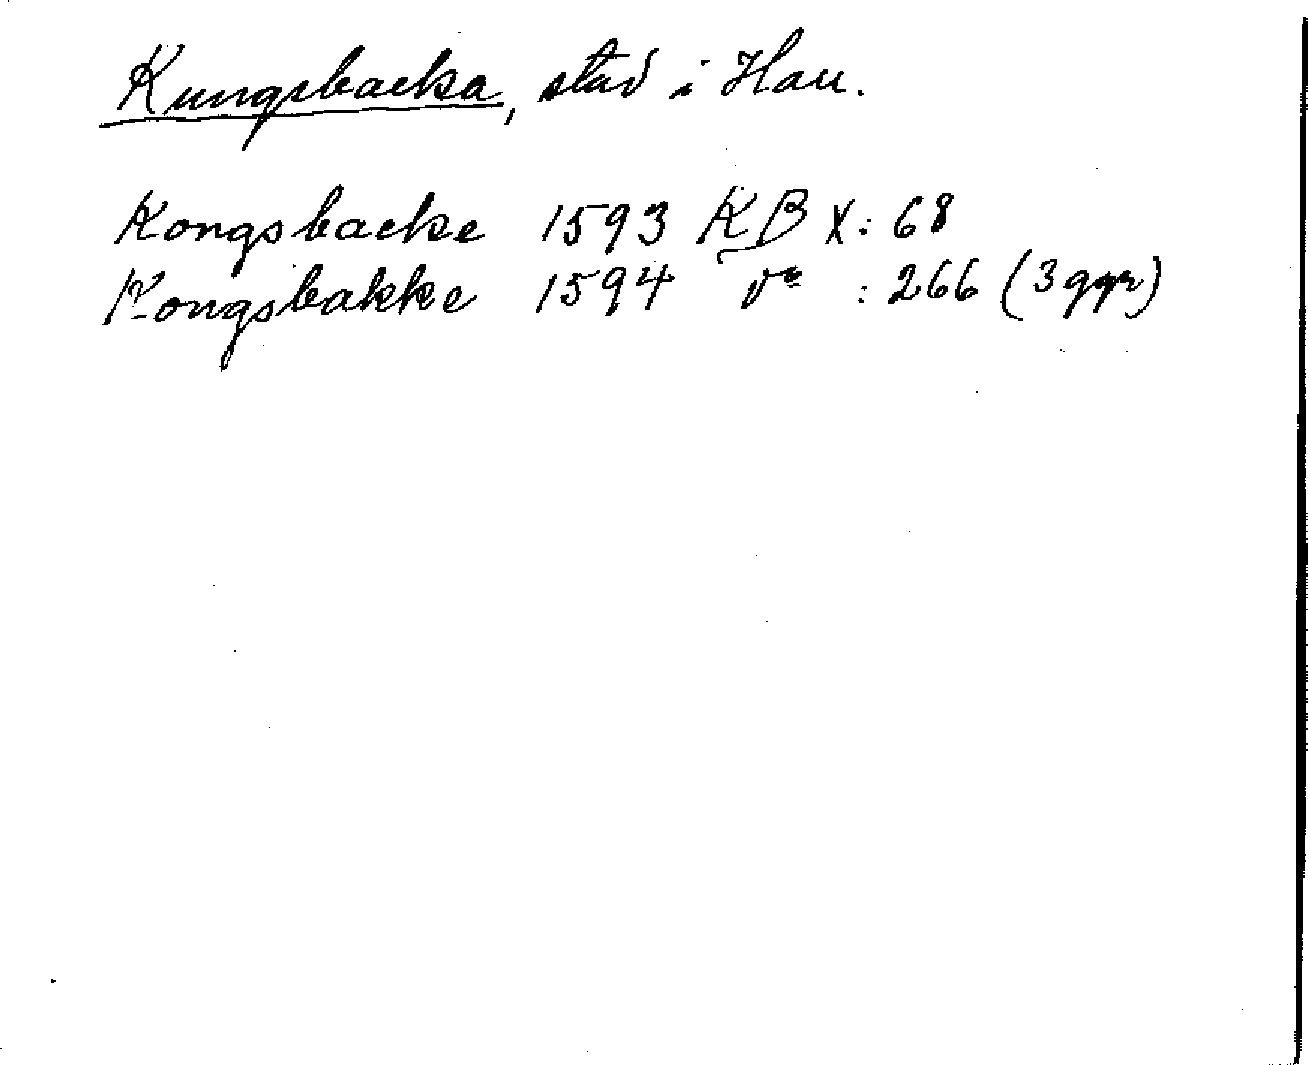 Kungsbacka, stad i Hall.
Kongsbacke 1593 KB X: 68
Kongsbakke 1594 do : 266 (3 ggr)